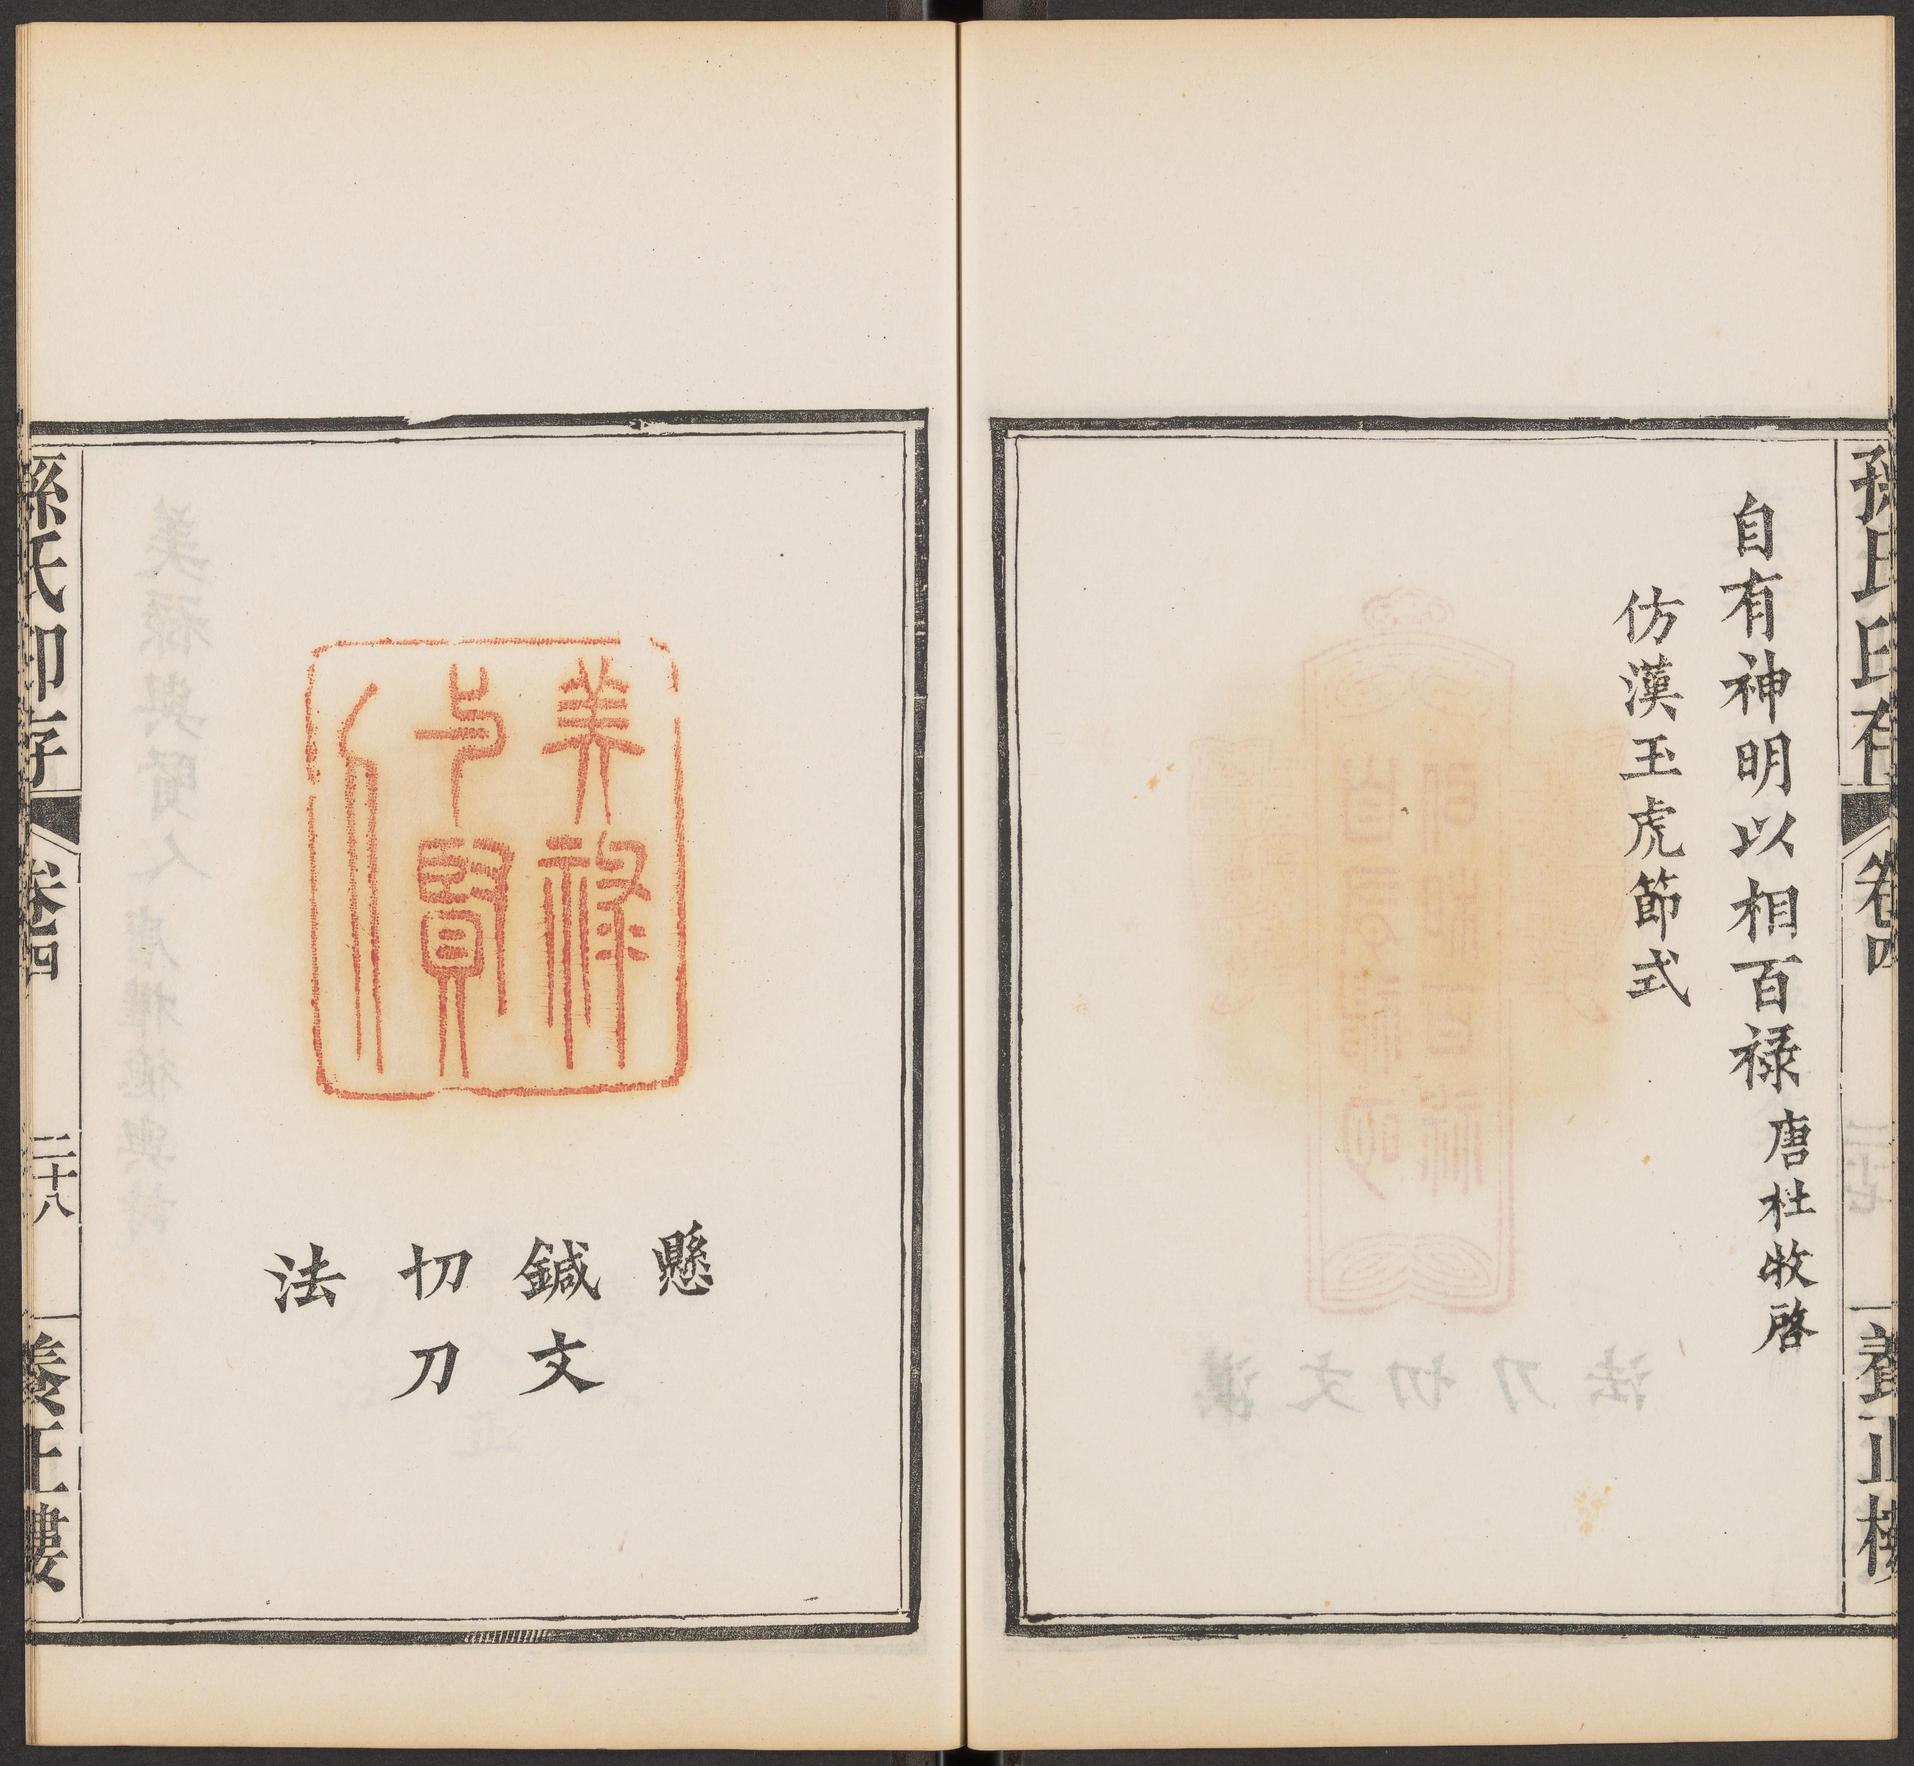 孫氏印存 卷四 養正樓
自有神明以相百禄 唐杜牧啓
仿漢玉虎節式
美祿
与賢
人
懸
鍼文
切刀
法
孫氏印存 卷四 二十八 養正樓